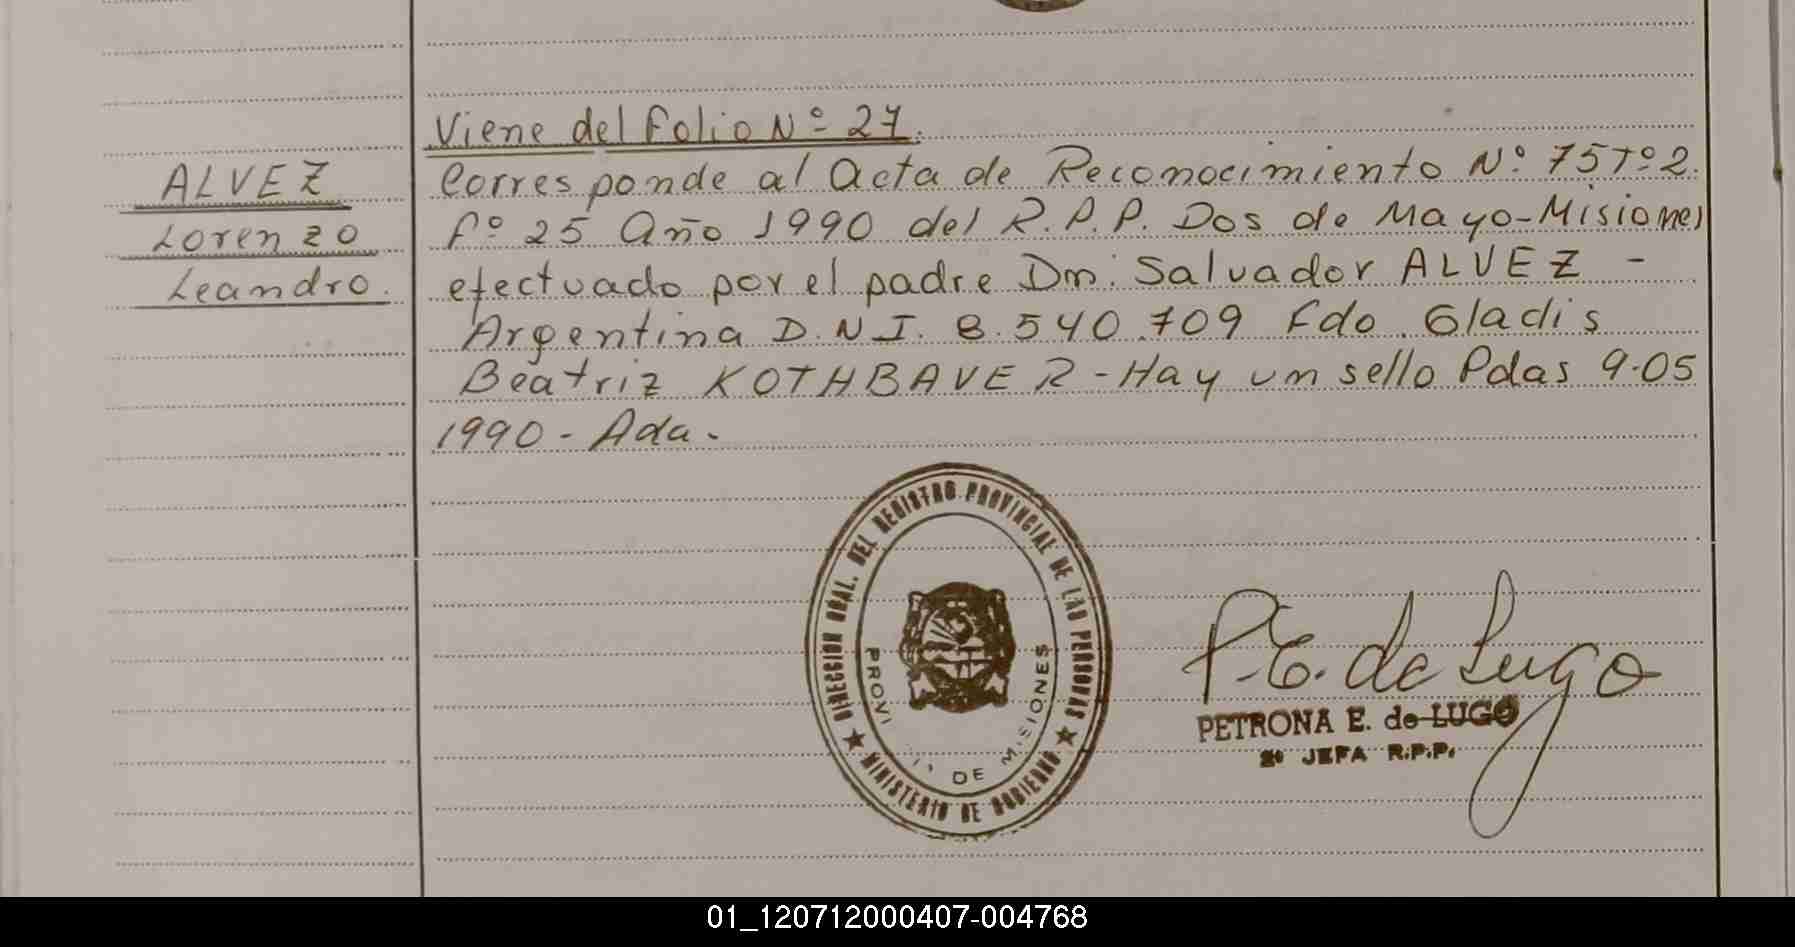 Viene del Folio Nº 27.
ALVEZ
Lorenzo
Leandro.
Corresponde al Acta de Reconocimiento Nº 75 Tº 2.
Fº 25 Año 1990 del R.P.P. Dos de Mayo-Misiones
efectuado por el padre Dn. Salvador ALVEZ -
Argentina D.N.I. 8.540.709 Fdo. Gladis
Beatriz KOTHBAVER - Hay un sello Pdas 9.05
1990 - Ada.
DIRECCION GRAL. DEL REGISTRO PROVINCIAL DE LAS PERSONAS
PROVI DE MISIONES
★ MINISTERIO DE GOBIERNO ★
P. E. de Lugo
PETRONA E. de LUGO
2º JEFA R.P.P.
01_120712000407-004768